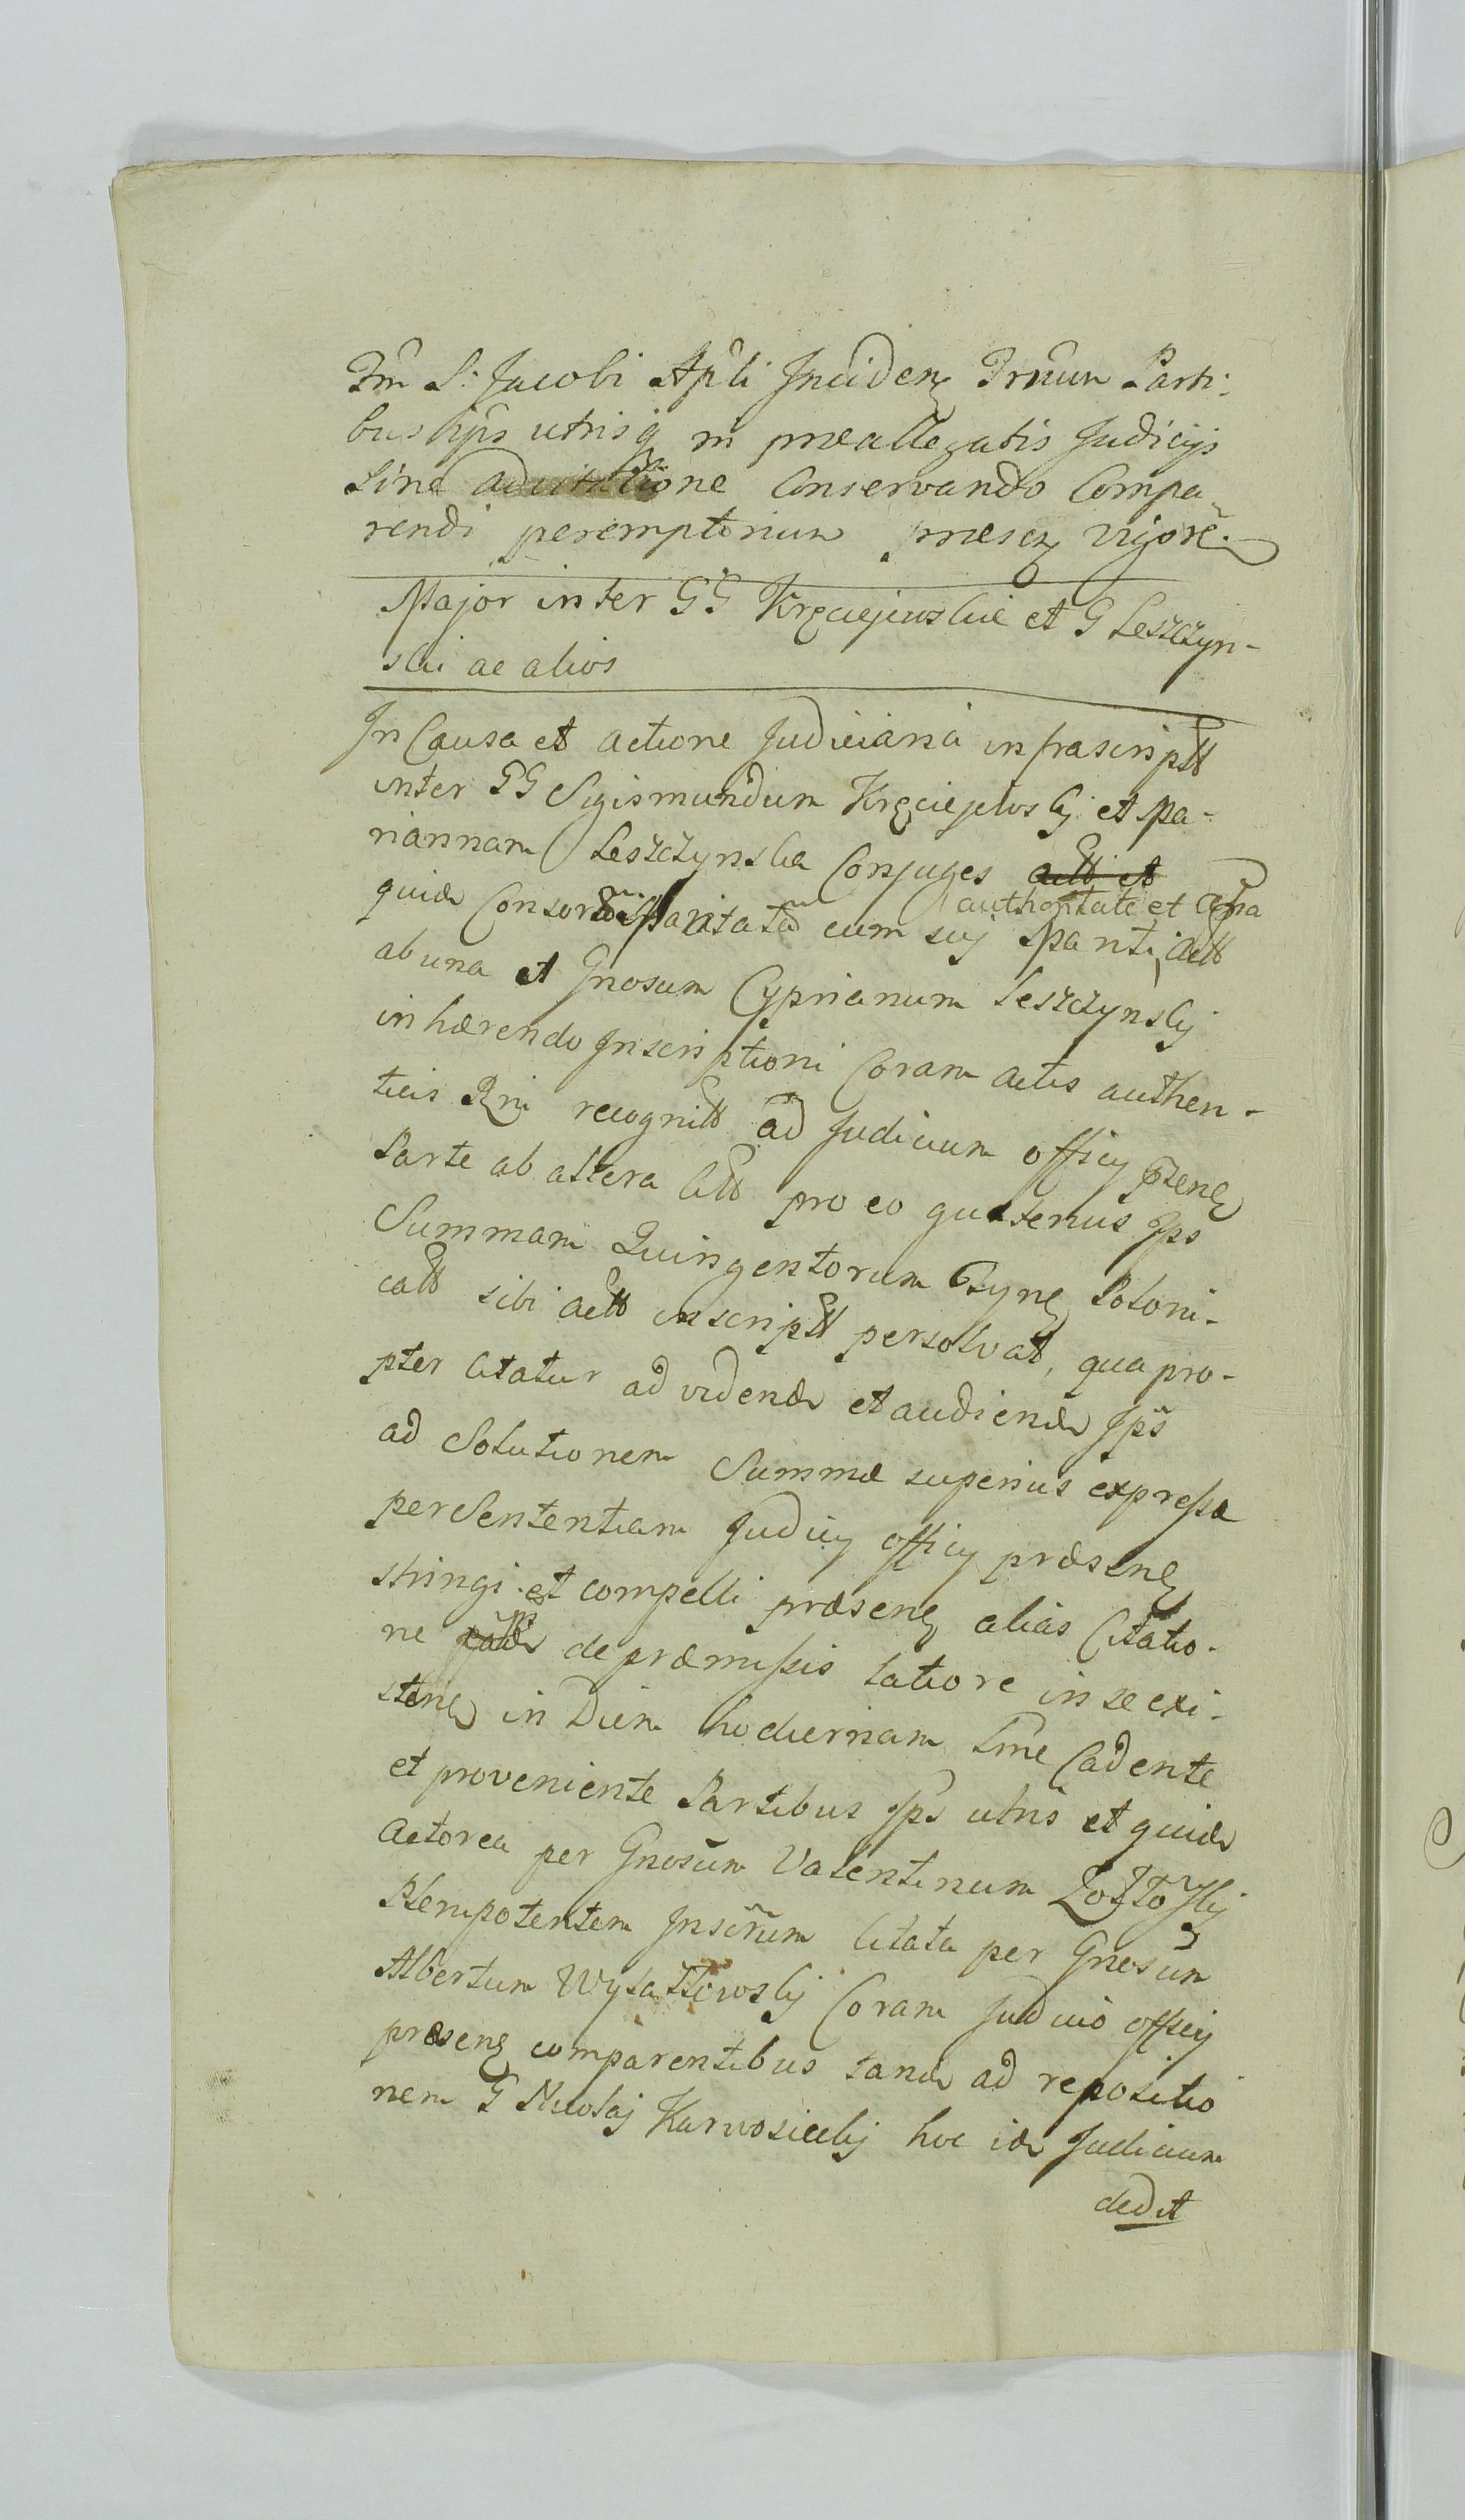 Fm S: Jacobi Apli Inciden Trnum Parti:
bus Ips utrisq in præallegatis Judicijs
Sine adcitatione Conservando Compa-
rendi peremptorium præsen vigore.
Major inter GG Kręciejewskie et G Leszczyn-
ski ac alios
In Causa et actione Judiciaria infrascriptt
inter GG Sigismundum Kręciejewskij et Ma-
riannam Leszczynska Conjuges
authoritate et
quide Consor Maritata cum suj Mariti actt
ab una et Gnosum Cyprianum Leszczynskij
inhærendo Inscriptioni Coram actis authen-
ticis Rni recognitt ad Judicium officij Psenē
Parte ab altera Citt pro eo quatenus Ips
Summam Quingentorum Tynf Poloni-
catt sibi actt inscriptt persolvat, qua pro-
pter Citatur ad videnď et audienď Ips
ad Solutionem Summæ superius expressæ
per Sententiam Judicij officij præsenē
stringi et compelli præsenē alias Citatio-
ne de præmissis latiore in se exi-
stenē in Diem hodiernam Tme Cadente
et proveniente Partibus Ips utris et quide
Actorea per Gnosum Valentinum
Plenipotentem Inscrum Citata per Gnosum
Albertum Coram Judicio officij
præsenē comparentibus tande ad repositio
nem G Nicolaj Karwosieckij hoc ide Judicium
dedit